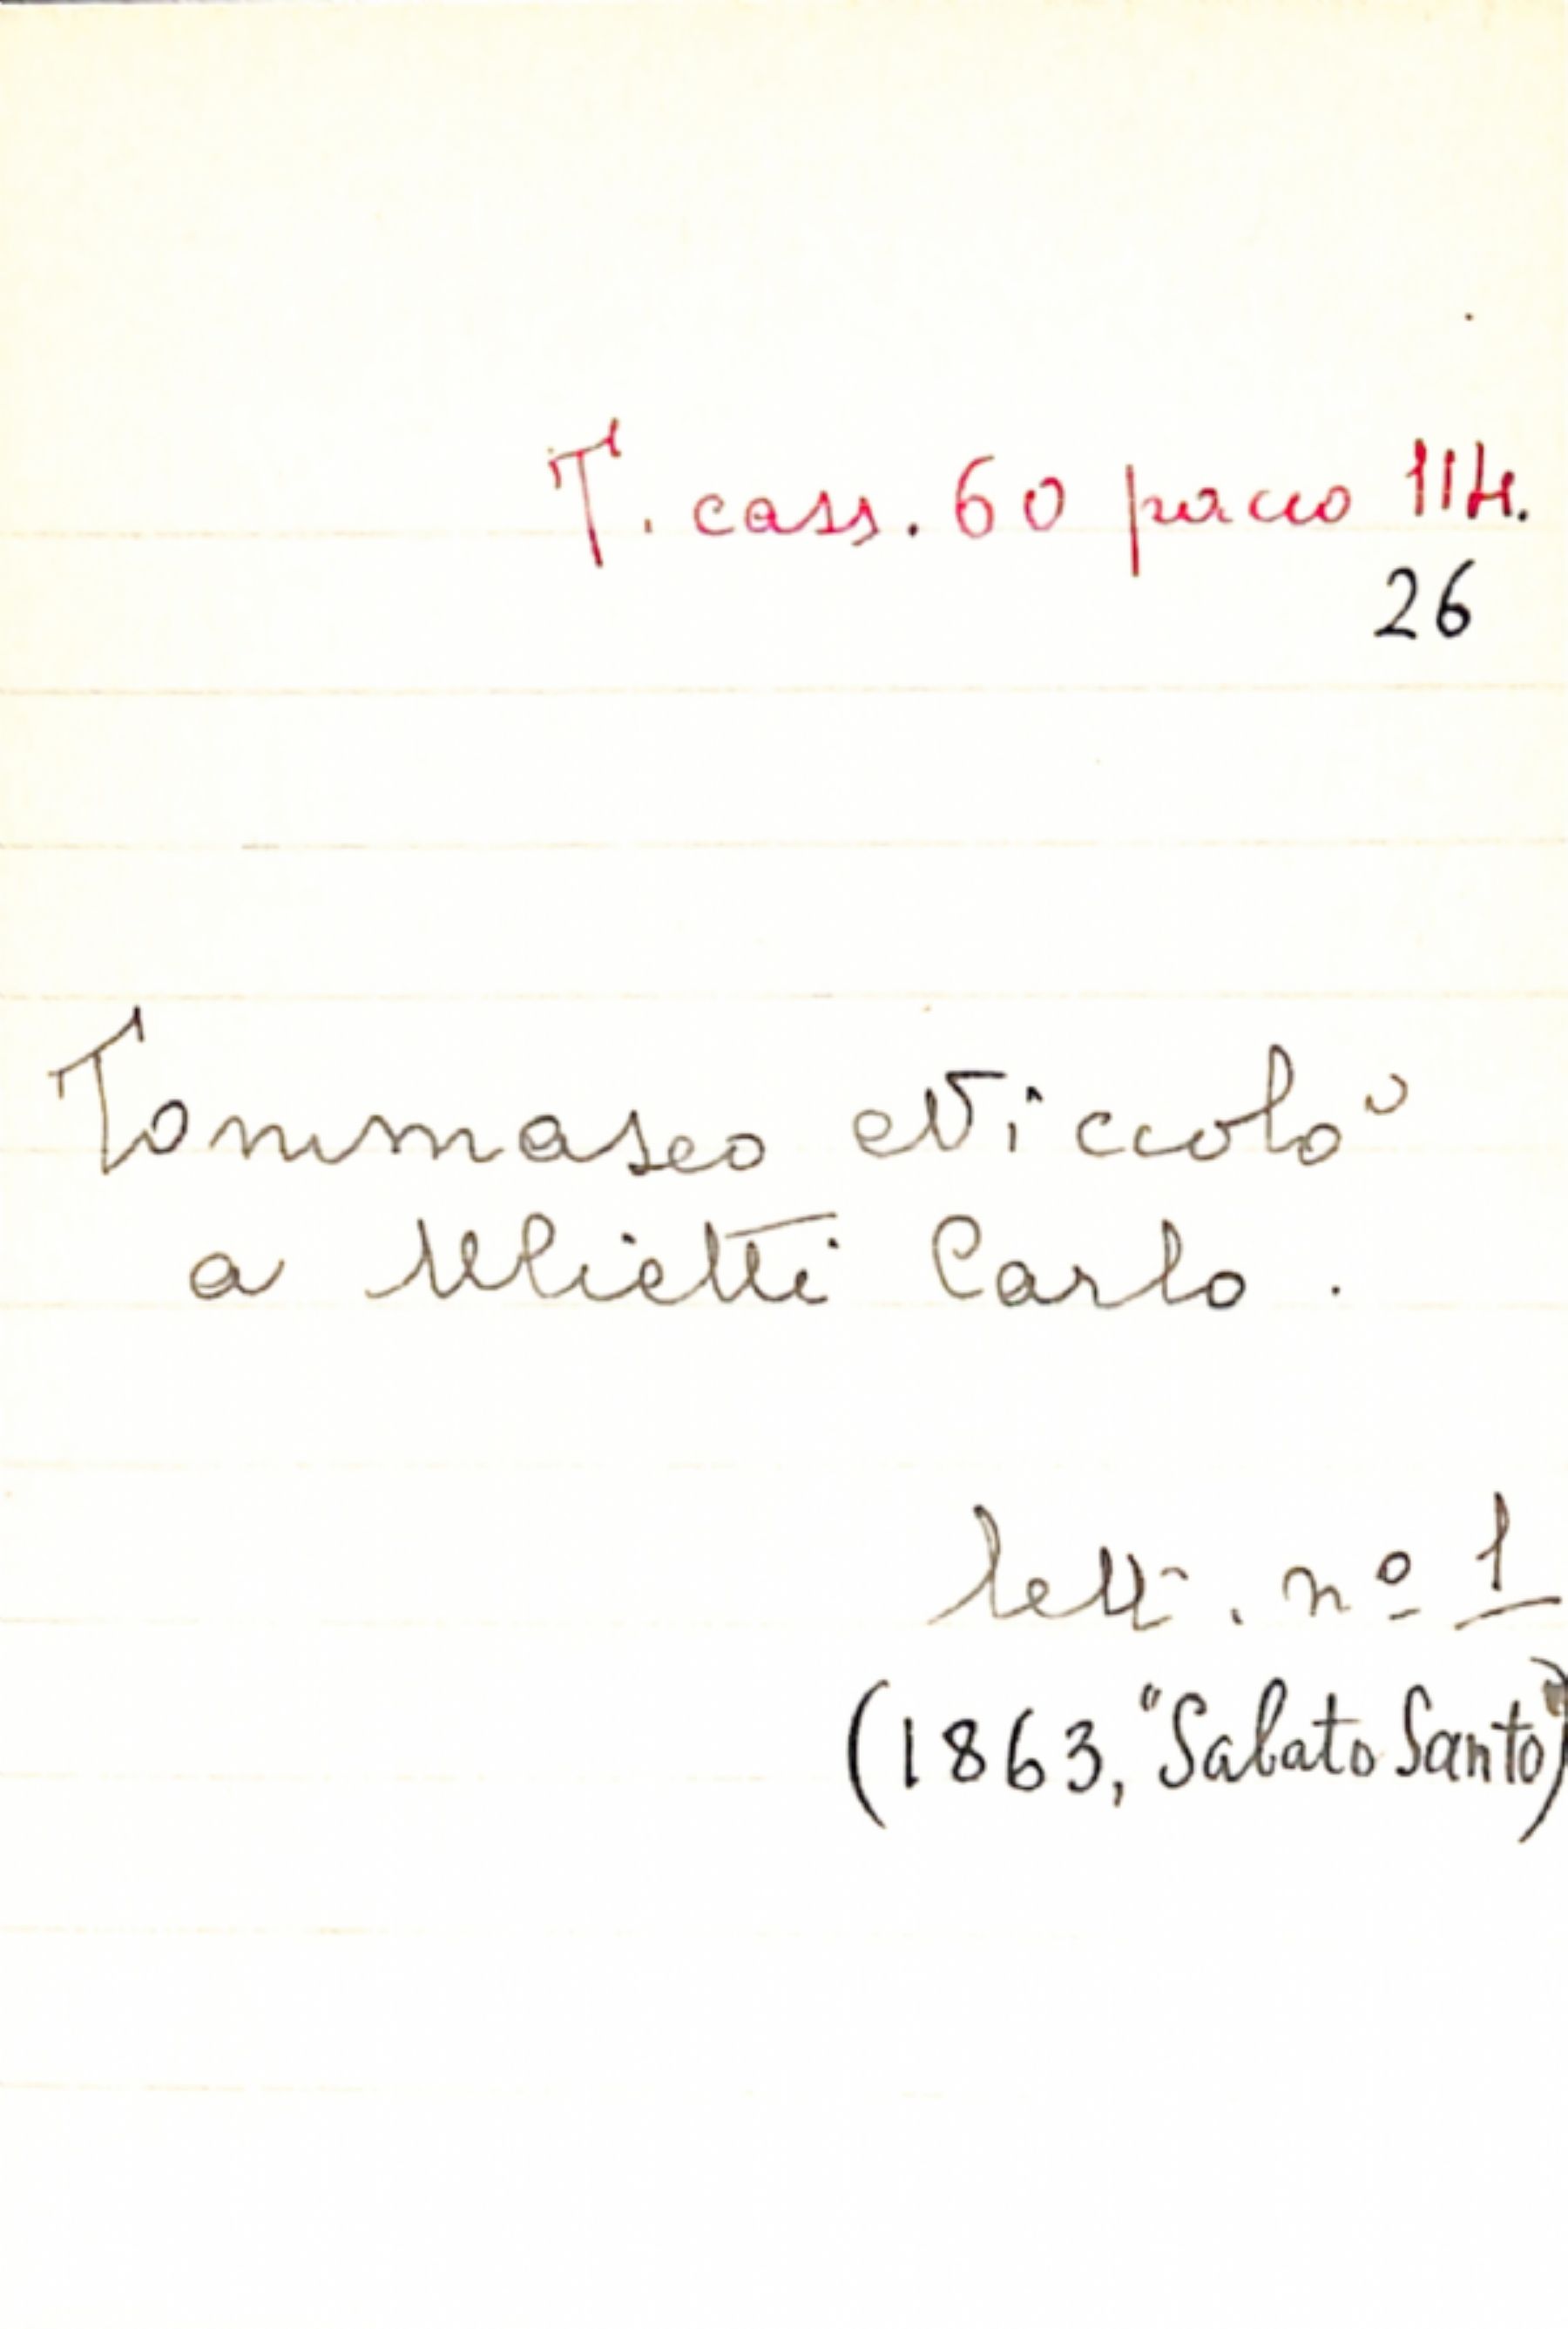 T. cass. 60 pacco 114.
26
Tommaseo Niccolò
a Mietti Carlo.
lett. nº 1
(1863, "Sabato Santo")